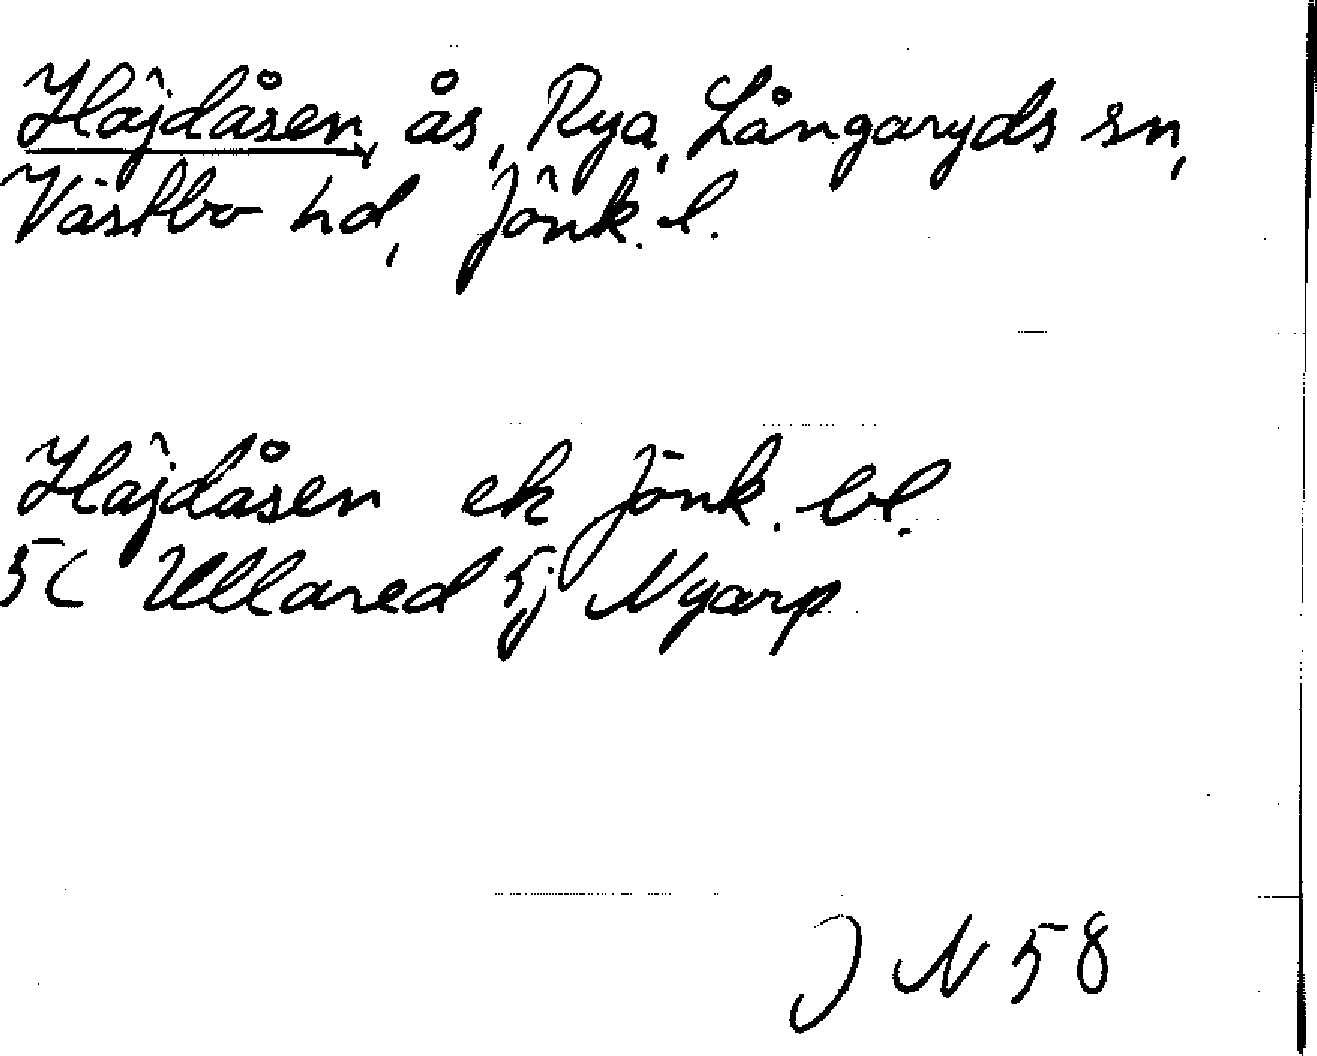 Höjdåsen, ås, Rya, Långaryds sn,
Västbo hd, Jönk. l.
Höjdåsen ek Jönk. bl.
5C Ullared 5j Nyarp
J N 58